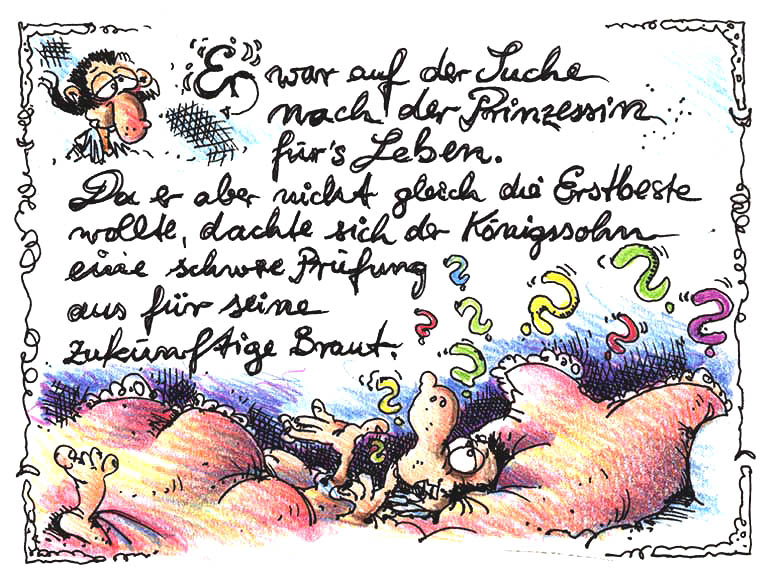 Er war auf der Suche
nach der Prinzessin
für's Leben.
Da er aber nicht gleich die Erstbeste
wollte, dachte sich der Königssohn
eine schwere Prüfung
aus für seine
zukünftige Braut.
? ? ? ? ? ? ? ? ? ?